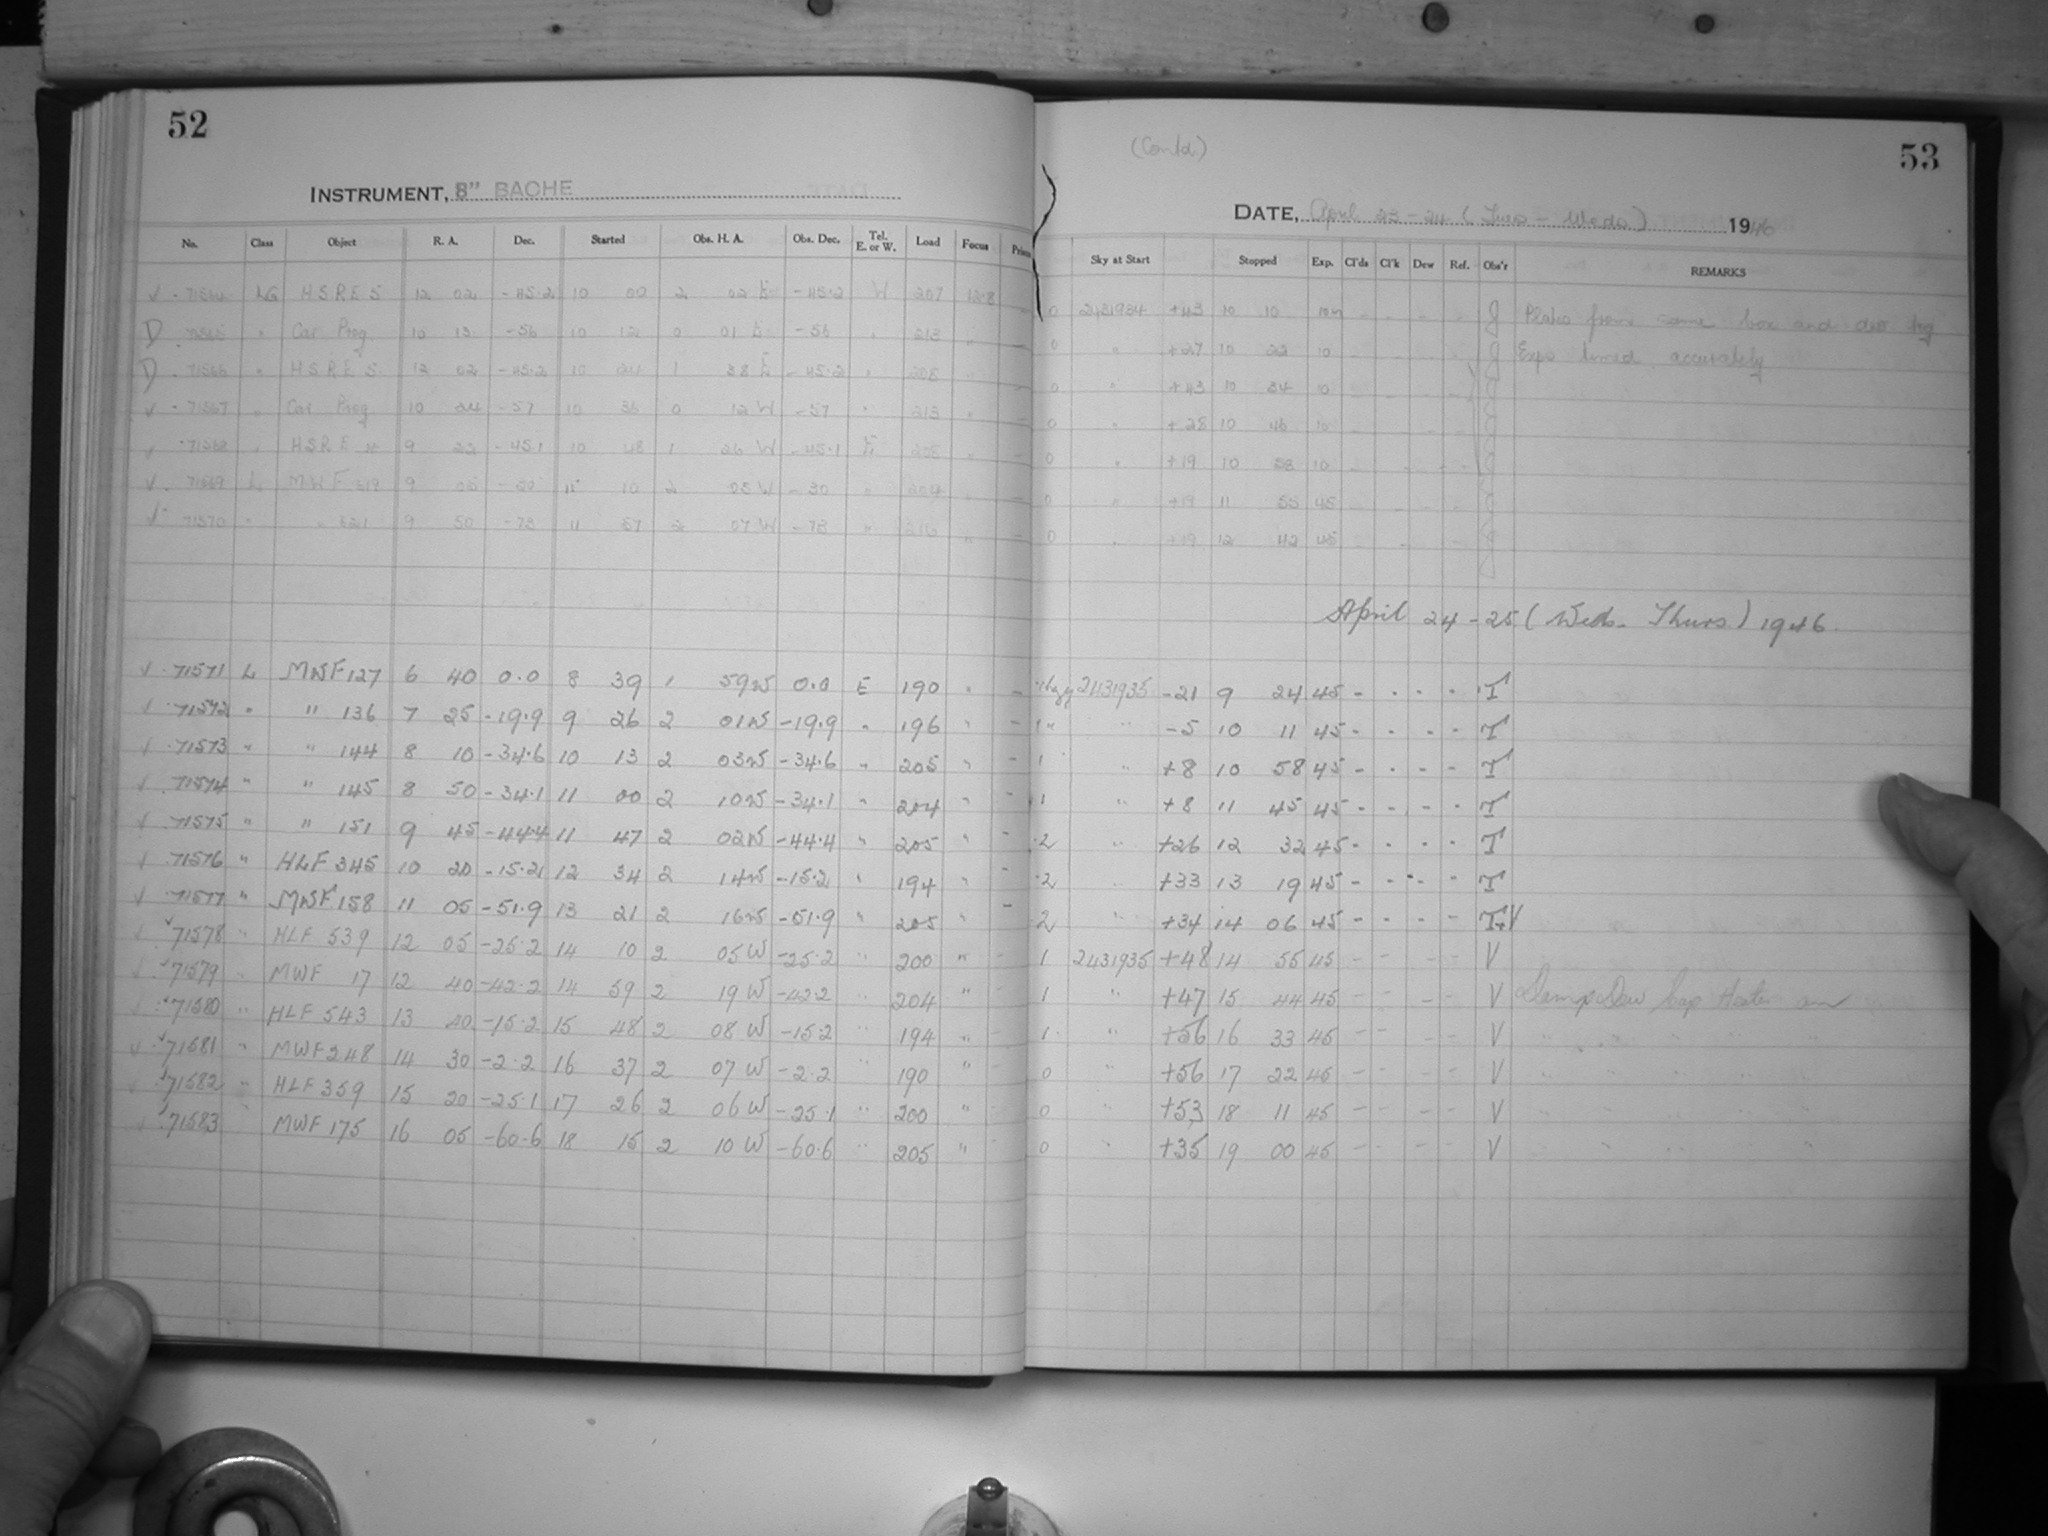 52
INSTRUMENT, 8" BACHE
No. Class Object R. A. Dec. Started Obs. H. A. Obs. Dec. Tel. E. or W. Load Focus
71564 LG HSRE 5 12 02 -45.2 10 00 2 02 E -45.2 W 207 13.8
D 71565 " Car Prog. 10 13 -56 10 12 0 01 E -56 " 213 "
D 71566 " HSRE 5 12 02 -45.2 10 24 1 38 E -45.2 " 208
71567 Car Prog 10 24 -57 10 36 0 12 W -57 " 213 "
71568 HSRE 9 22 -45.1 10 48 1 26 W -45.1 E 208
71569 L MWF 9 05 -30 11 10 2 05 W -30 " 204
71570 " 9 50 -73 11 57 2 07 W -73 " 216 "
√ 71571 L MWF 127 6 40 0.0 8 39 1 59 W 0.0 E 190 " -
√ 71572 " " 136 7 25 -19.9 9 26 2 01 W -19.9 " 196 " -
√ 71573 " " 144 8 10 -34.6 10 13 2 03 W -34.6 " 205 " -
√ 71574 " " 145 8 50 -34.1 11 00 2 10 W -34.1 " 204 " -
√ 71575 " " 151 9 45 -44.4 11 47 2 02 W -44.4 " 205 " -
√ 71576 " HLF 345 10 20 -15.2 12 34 2 14 W -15.2 " 194 " -
√ 71577 " MWF 158 11 05 -51.9 13 21 2 16 W -51.9 " 205 " -
√ 71578 " HLF 539 12 05 -25.2 14 10 2 05 W -25.2 " 200 " -
√ 71579 " MWF 17 12 40 -42.2 14 59 2 19 W -42.2 " 204 " -
√ 71580 " HLF 543 13 40 -15.2 15 48 2 08 W -15.2 " 194 " -
√ 71581 " MWF 248 14 30 -2.2 16 37 2 07 W -2.2 " 190 " -
√ 71582 " HLF 359 15 20 -25.1 17 26 2 06 W -25.1 " 200 " -
√ 71583 MWF 175 16 05 -60.6 18 15 2 10 W -60.6 " 205 " -
(Contd)
53
DATE, April 23-24 (Tues - Weds) 1946
Sky at Start Stopped Exp. Cl'ds Cl'k Dew Ref. Obs'r REMARKS
0 2431934 +43 10 10 10m - - - - J Plates from same box and dev tog
0 " +27 10 22 10 - - - - J Exps timed accurately
0 " +43 10 34 10 - - - - J
0 " +28 10 46 10 - - J
0 " +19 10 58 10 - - - - J
0 " +19 11 55 45 - - - - J
0 " +19 12 42 45 - - - - J
April 24-25 (Weds - Thurs) 1946.
2431935 -21 9 24 45 - - - - T
1 " " -5 10 11 45 - - - - T
1 " +8 10 58 45 - - - - T
1 " +8 11 45 45 - - - - T
2 " +26 12 32 45 - - - - T
2 " +33 13 19 45 - - - - T
2 " +34 14 06 45 - - - - T+V
1 2431935 +48 14 55 45 - - - - V
1 " +47 15 44 45 - - - - V Damp Dew Cap Heater on
1 " +56 16 33 45 - - - - V " " " "
0 " +56 17 22 45 - - - - V " " " "
0 " +53 18 11 45 - - - - V " " " "
0 " +35 19 00 45 - - - - V " " " "